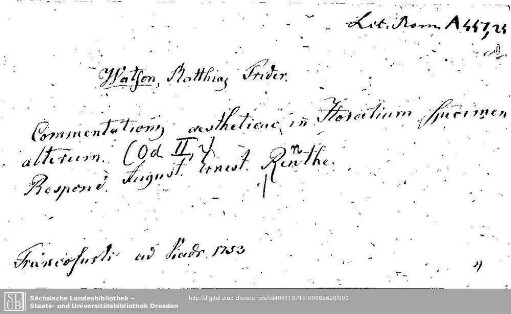 Lit. Rom. A 447,23
Watson, Matthias Frider.
Commentationis aestheticae in Horatium specimen
alterum. (Od II, 7)
Respond. August. Ernest. Renthe.
Francofurti ad Viadr. 1753
SLUB
Sächsische Landesbibliothek –
Staats- und Universitätsbibliothek Dresden